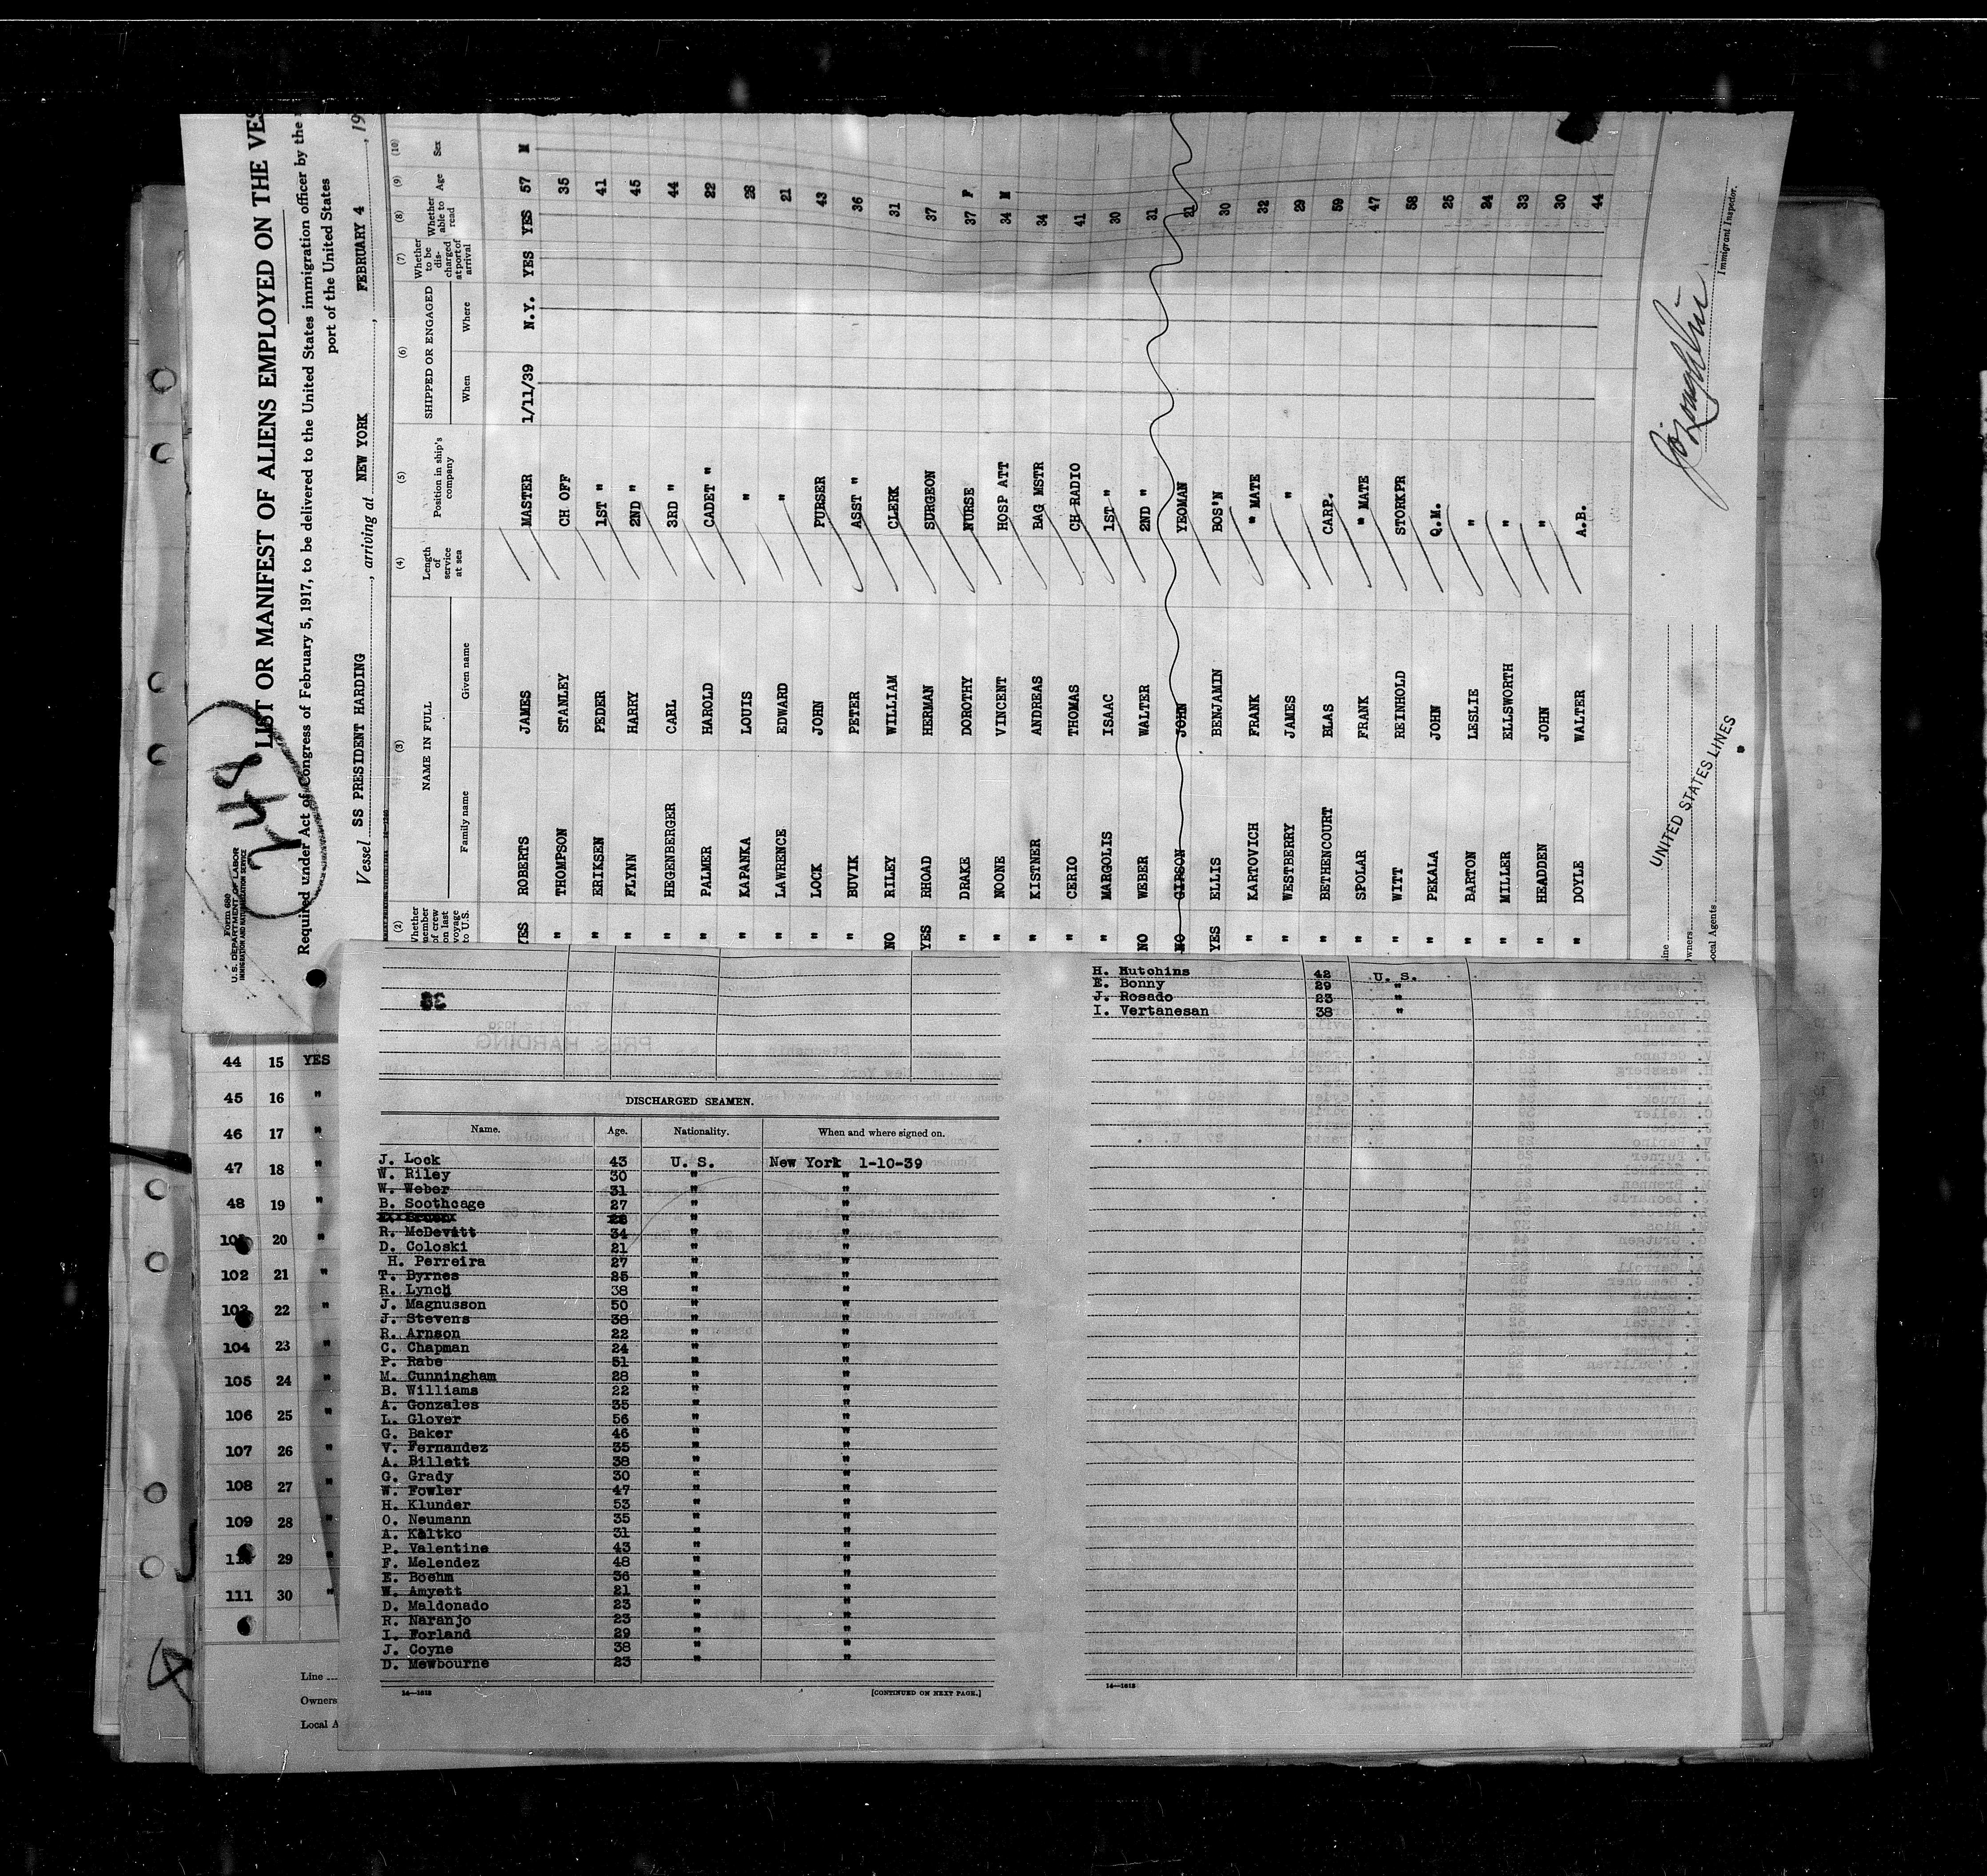 248
Form 680
U.S. DEPARTMENT OF LABOR
IMMIGRATION AND NATURALIZATION SERVICE
LIST OR MANIFEST OF ALIENS EMPLOYED ON THE VES
Required under Act of Congress of February 5, 1917, to be delivered to the United States immigration officer by the
port of the United States
Vessel SS PRESIDENT HARDING, arriving at NEW YORK, FEBRUARY 4, 19
(2) (3) (4) (5) (6) (7) (8) (9) (10)
Whether member of crew on last voyage to U.S. NAME IN FULL Family name Given name Length of service at sea Position in ship's company SHIPPED OR ENGAGED When Where Whether to be discharged at port of arrival Whether able to read Age Sex
YES ROBERTS JAMES MASTER 1/11/39 N.Y. YES YES 57 M
" THOMPSON STANLEY CH OFF 35
" ERIKSEN PEDER 1ST " 41
" FLYNN HARRY 2ND " 45
" HEGENBERGER CARL 3RD " 44
" PALMER HAROLD CADET " 22
" KAPANKA LOUIS " 28
" LAWRENCE EDWARD " 21
" LOCK JOHN PURSER 43
" BUVIK PETER ASST " 36
NO RILEY WILLIAM CLERK 31
YES RHOAD HERMAN SURGEON 37
" DRAKE DOROTHY NURSE 37 F
" NOONE VINCENT HOSP ATT 34 M
" KISTNER ANDREAS BAG MSTR 34
" CERIO THOMAS CH RADIO 41
" MARGOLIS ISAAC 1ST " 30
NO WEBER WALTER 2ND " 31
NO GIPSON JOHN YEOMAN 21
YES ELLIS BENJAMIN BOS'N 30
" KARTOVICH FRANK " MATE 32
" WESTBERRY JAMES " 29
" BETHENCOURT BLAS CARP. 59
" SPOLAR FRANK " MATE 47
" WITT REINHOLD STORKPR 58
" PEKALA JOHN Q.M. 25
" BARTON LESLIE " 24
" MILLER ELLSWORTH " 33
" HEADDEN JOHN " 30
" DOYLE WALTER A.B. 44
UNITED STATES LINES
Immigrant Inspector.
Local Agents
44 15 YES
45 16 "
46 17 "
47 18 "
48 19 "
20 "
102 21 "
103 22 "
104 23 "
105 24 "
106 25 "
107 26 "
108 27 "
109 28 "
29 "
111 30 "
Line
Owners
Local A
DISCHARGED SEAMEN.
Name. Age. Nationality. When and where signed on.
J. Lock 43 U. S. New York 1-10-39
W. Riley 30 " "
W. Weber 31 " "
B. Soothcage 27 " "
R. McDevitt 34 " "
D. Coloski 21 " "
H. Perreira 27 " "
T. Byrnes 25 " "
R. Lynch 38 " "
J. Magnusson 50 " "
J. Stevens 38 " "
R. Arnson 22 " "
C. Chapman 24 " "
P. Rabe 51 " "
M. Cunningham 28 " "
B. Williams 22 " "
A. Gonzales 35 " "
L. Glover 56 " "
G. Baker 46 " "
V. Fernandez 35 " "
A. Billett 38 " "
G. Grady 30 " "
W. Fowler 47 " "
H. Klunder 53 " "
O. Neumann 35 " "
A. Kaltko 31 " "
P. Valentine 43 " "
F. Melendez 48 " "
E. Boehm 36 " "
W. Amyett 21 " "
D. Maldonado 23 " "
R. Naranjo 23 " "
I. Forland 29 " "
J. Coyne 38 " "
D. Mewbourne 23 " "
14—1612
[CONTINUED ON NEXT PAGE.]
H. Hutchins 42 U. S.
E. Bonny 29 "
J. Rosado 23 "
I. Vertanesan 38 "
14—1612